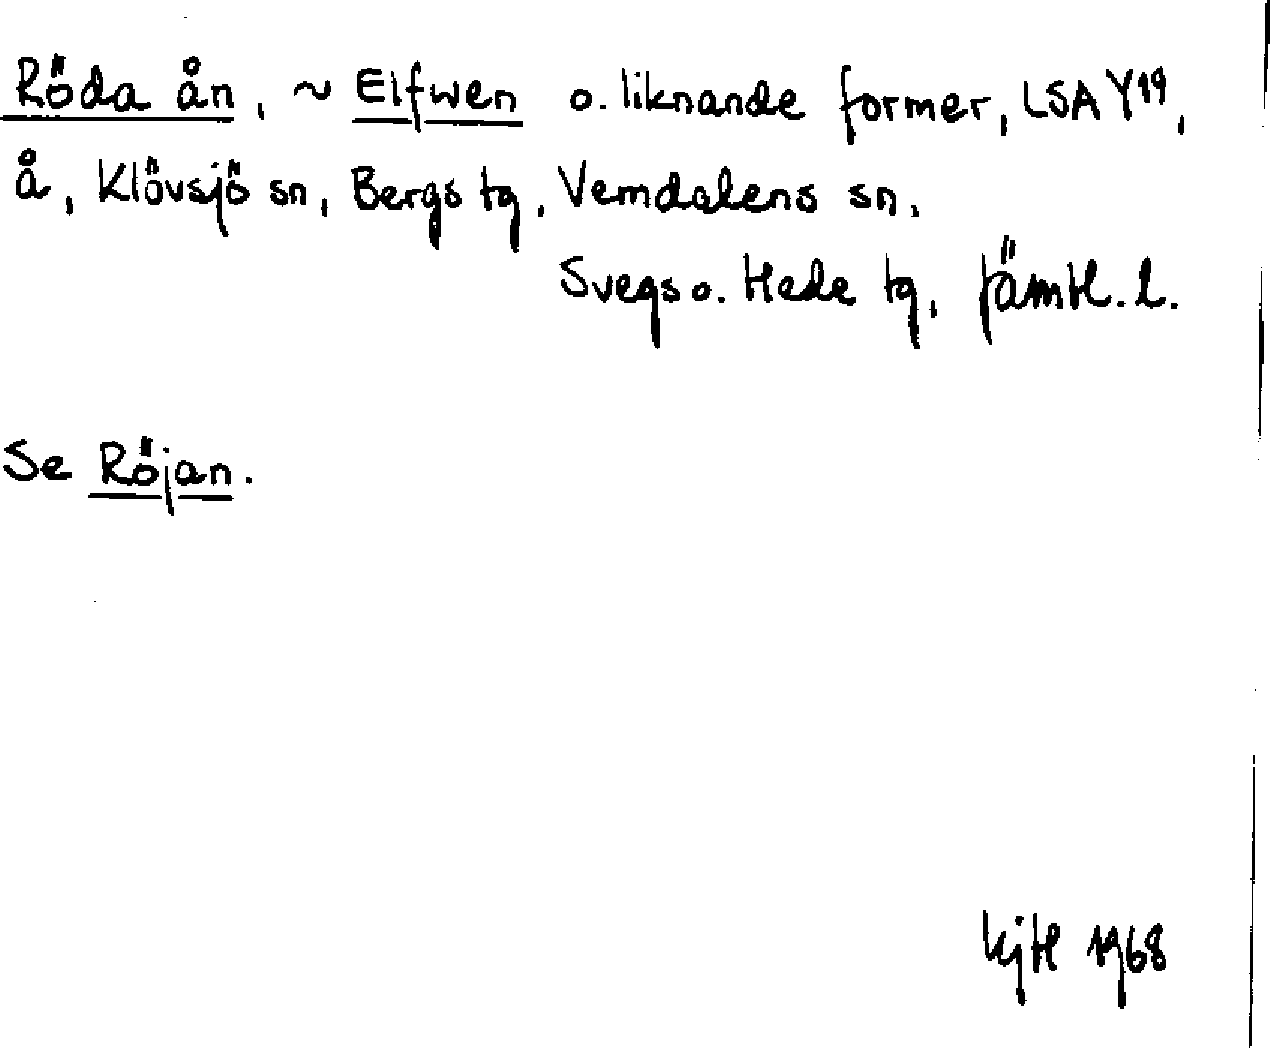 Röda ån, ~ Elfwen o. liknande former, LSA Y19,
å, Klövsjö sn, Bergs tg, Vemdalens sn,
Svegs o. Hede tg, Jämtl. l.
Se Röjan.
1968